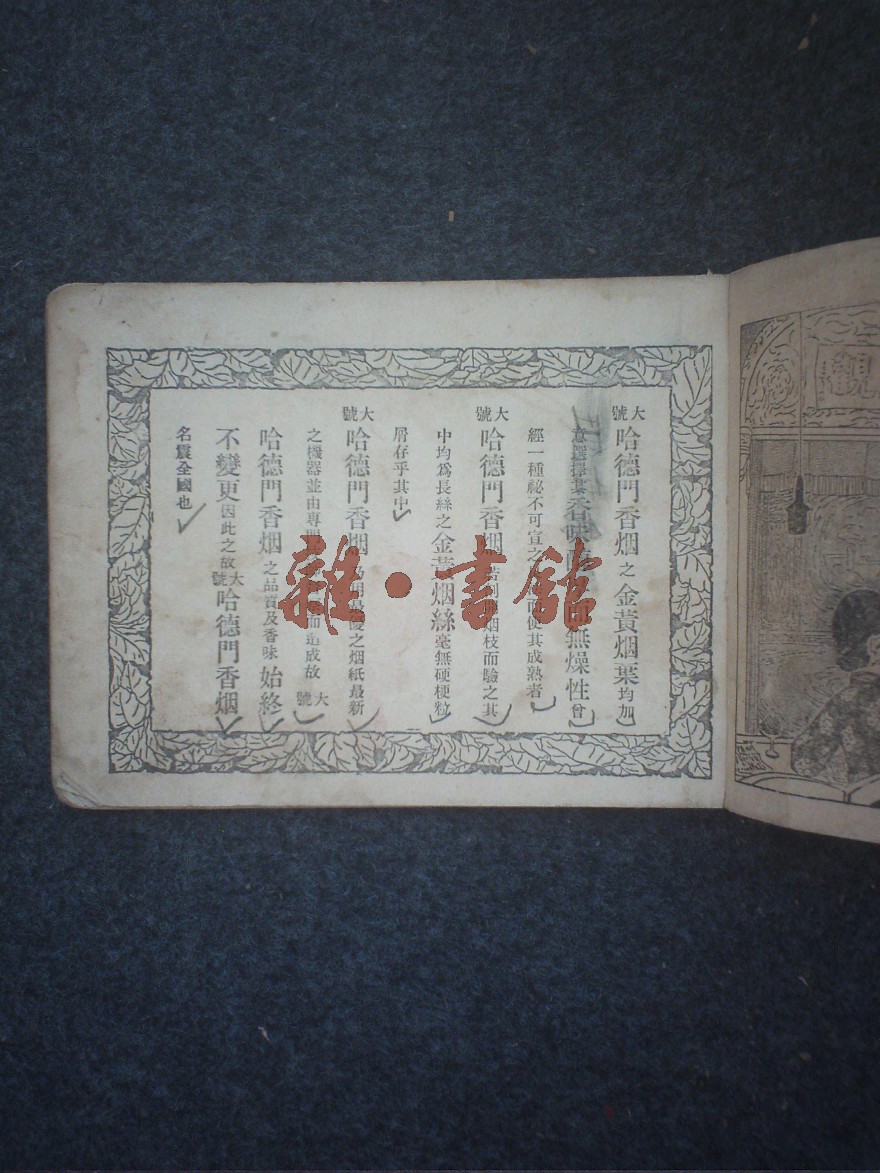 大號哈德門香烟之金黃烟葉均加
意選擇其香味無燥性曾
經一種祕不可宣之而使其成熟者
大號哈德門香烟烟枝而驗之其
中均爲長絲之金黃烟絲毫無硬梗粒
屑存乎其中
大號哈德門香烟之烟紙最新
之機器並由專而造成故大號
哈德門香烟之品質及香味始終
不變更因此之故大號哈德門香烟
名震全國也
雜·書館
觀